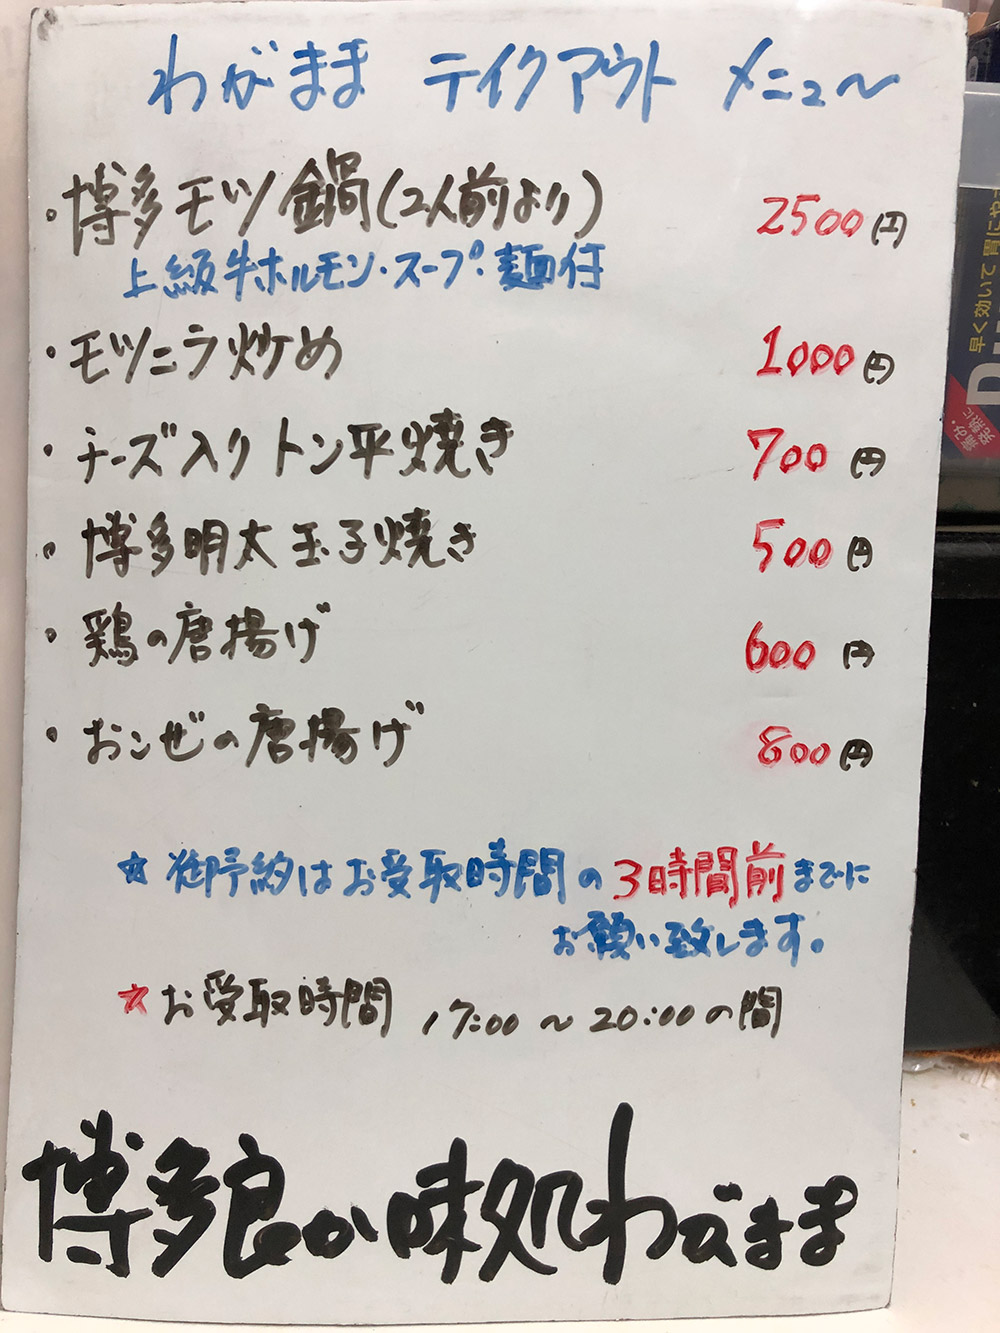 わがまま テイクアウト メニュ〜
・博多モツ鍋(2人前より) 2500円
上級牛ホルモン・スープ・麺付
・モツニラ炒め 1000円
・チーズ入りトン平焼き 700円
・博多明太玉子焼き 500円
・鶏の唐揚げ 600円
・おこぜの唐揚げ 800円
☆御予約はお受取時間の3時間前までに
お願い致します。
☆お受取時間 17:00〜20:00の間
博多良か味処わがまま
早く効いて
痛み・
発熱に